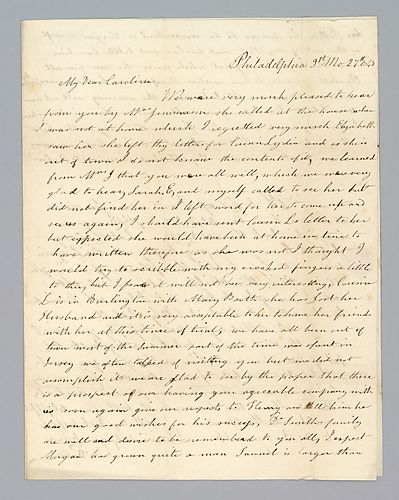 Philadelphia 9th Mo. 27th 43
My Dear Caroline
We were very much pleased to hear
from you by Mrs Jennerson she called at the house when
I was not at home which I regretted very much Elizabeth
saw her she left thy letter for Cousin Lydia and as she is
out of town I do not know the contents of it, we learned
from Mrs J that you were all well, which we were very
glad to hear, Sarah, E, and myself called to see her but
did not find her in I left word for her to come up and
see us again, I should have sent Cousin L's letter to her
but expected she would have been at home in time to
have written therefore as she was not I thought I
would try to scribble with my crooked fingers a little
to thee, but I fear it will not be very interesting, Cousin
L is in Burlington with Mary Booth she has lost her
Husband and it is very acceptable to her to have her friends
with her at this time of trial, we have all been out of
town most of the summer part of the time was spent in
Jersey we often talked of visiting you but we did not
accomplish it we are glad to see by the paper that there
is a prospect of our having your agreeable company with
us soon again give our respects to Henry and tell him he
has our good wishes for his success, D Smiths family
are well and desire to be remembered to you all, I expect
Morgan has grown quite a man Samuel is larger than